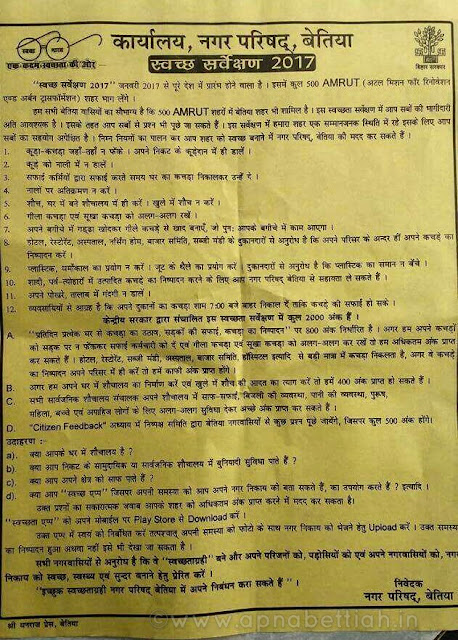 स्वच्छ भारत
एक कदम स्वच्छता की ओर
कार्यालय, नगर परिषद्, बेतिया
स्वच्छ सर्वेक्षण 2017
बिहार सरकार
"स्वच्छ सर्वेक्षण 2017" जनवरी 2017 से पूरे देश में प्रारंभ होने वाला है। इसमें कुल 500 AMRUT (अटल मिशन फॉर रिनोवेशन
एण्ड अर्बन ट्रांसफॉर्मेशन) शहर भाग लेंगे।
हम सभी बेतिया वासियों का सौभाग्य है कि 500 AMRUT शहरों में बेतिया शहर भी शामिल है। इस स्वच्छता सर्वेक्षण में आप सबों की भागीदारी
अति आवश्यक है। इसके तहत आप सबों से प्रश्न भी पूछे जा सकते हैं। इस सर्वेक्षण में हमारा शहर एक सम्मानजनक स्थिति में रहे इसके लिए आप
सबों का सहयोग अपेक्षित है। निम्न नियमों का पालन कर आप शहर को स्वच्छ बनाने में नगर परिषद्, बेतिया की मदद कर सकते हैं।
1. कूड़ा-कचड़ा जहाँ-तहाँ न फेंके। अपने निकट के कूड़ेदान में ही डालें।
2. कूड़े को नालों में न डालें।
3. सफाई कर्मियों द्वारा सफाई करते समय घर का कचड़ा निकालकर उन्हें दें।
4. नालों पर अतिक्रमण न करें।
5. शौच, घर में बने शौचालय में ही करें। खुले में शौच न करें।
6. गीला कचड़ा एवं सूखा कचड़ा को अलग-अलग रखें।
7. अपने बगीचे में गड्ढा खोदकर गीले कचड़े से खाद बनाएँ, जो पुन: आपके बगीचे में काम आएगा।
8. होटल, रेस्टोरेंट, अस्पताल, नर्सिंग होम, बाजार समिति, सब्जी मंडी के दुकानदारों से अनुरोध है कि अपने परिसर के अन्दर हीं अपने कचड़े का
निष्पादन करें।
9. प्लास्टिक, थर्मोकॉल का प्रयोग न करें। जूट के थैले का प्रयोग करें। दुकानदारों से अनुरोध है कि प्लास्टिक का समान न बेंचे।
10. शादी, पर्व-त्योहारों में उत्पादित कचड़े का निष्पादन करने के लिए आप नगर परिषद् बेतिया से सहायता ले सकते हैं।
11. अपने पोखरे, तालाब में गंदगी न डालें।
12. व्यवसायियों से आग्रह है कि अपने दुकानों का कचड़ा शाम 7:00 बजे बाहर निकाल दें ताकि कचड़े की सफाई हो सके।
केन्द्रीय सरकार द्वारा संचालित इस स्वच्छता सर्वेक्षण में कुल 2000 अंक हैं।
A. "प्रतिदिन प्रत्येक घर से कचड़ा का उठाव, सड़कों की सफाई, कचड़ा का निष्पादन" पर 800 अंक निर्धारित है। अगर हम अपने कचड़ों
को सड़क पर न फेंककर सफाई कर्मचारी को दें एवं गीला कचड़ा एवं सूखा कचड़ा को अलग-अलग कर रखें तो हम अधिकतम अंक प्राप्त
कर सकते हैं। होटल, रेस्टोरेंट, सब्जी मंडी, अस्पताल, बाजार समिति, हॉस्पिटल इत्यादि से बड़ी मात्रा में कचड़ा निकलता है, अगर वे कचड़े
का निष्पादन अपने परिसर में हीं करें तो हमें काफी अंक प्राप्त होंगे।
B. अगर हम अपने घर में शौचालय का निर्माण करें एवं खुले में शौच की आदत का त्याग करें तो हमें 400 अंक प्राप्त हो सकते हैं।
C. सभी सार्वजनिक शौचालय संचालक अपने शौचालय में साफ-सफाई, बिजली की व्यवस्था, पानी की व्यवस्था, पुरूष,
महिला, बच्चे एवं अपाहिज लोगों के लिए अलग-अलग सुविधा देकर अच्छे अंक प्राप्त कर सकते हैं।
D. "Citizen Feedback" अध्याय में निष्पक्ष समिति द्वारा बेतिया नगरवासियों से कुछ प्रश्न पूछे जायेंगे, जिसपर कुल 500 अंक होंगे।
उदाहरण :-
a). क्या आपके घर में शौचालय है ?
b). क्या आप निकट के सामुदायिक या सार्वजनिक शौचालय में बुनियादी सुविधा पाते हैं ?
c). क्या आप अपने क्षेत्र को साफ पाते हैं ?
d). क्या आप "स्वच्छ एप्प" जिसपर अपनी समस्या को आप अपने नगर निकाय को बता सकते हैं, का उपयोग करते हैं ? इत्यादि।
उक्त प्रश्नों का सकारात्मक जवाब आपके शहर को अधिकतम अंक प्राप्त करने में मदद कर सकता है।
"स्वच्छता एप्प" को अपने मोबाईल पर Play Store से Download करें।
उक्त एप्प में स्वयं को निबंधित करें तत्पश्चात् अपनी समस्या को फोटो के साथ नगर निकाय को भेजने हेतु Upload करें। उक्त समस्या
का निष्पादन हुआ अथवा नहीं इसे भी देखा जा सकता है।
सभी नगरवासियों से अनुरोध है कि वे "स्वच्छताग्रही" बने और अपने परिजनों को, पड़ोसियों को एवं अपने नगरवासियों को, नगर
निकाय को स्वच्छ, स्वस्थ्य एवं सुन्दर बनाने हेतु प्रेरित करें।
"इच्छुक स्वच्छताग्रही नगर परिषद् बेतिया में अपने निबंधन करा सकते हैं"।
निवेदक
नगर परिषद्, बेतिया
श्री धनराज प्रेस, बेतिया
©www.apnabettiah.in